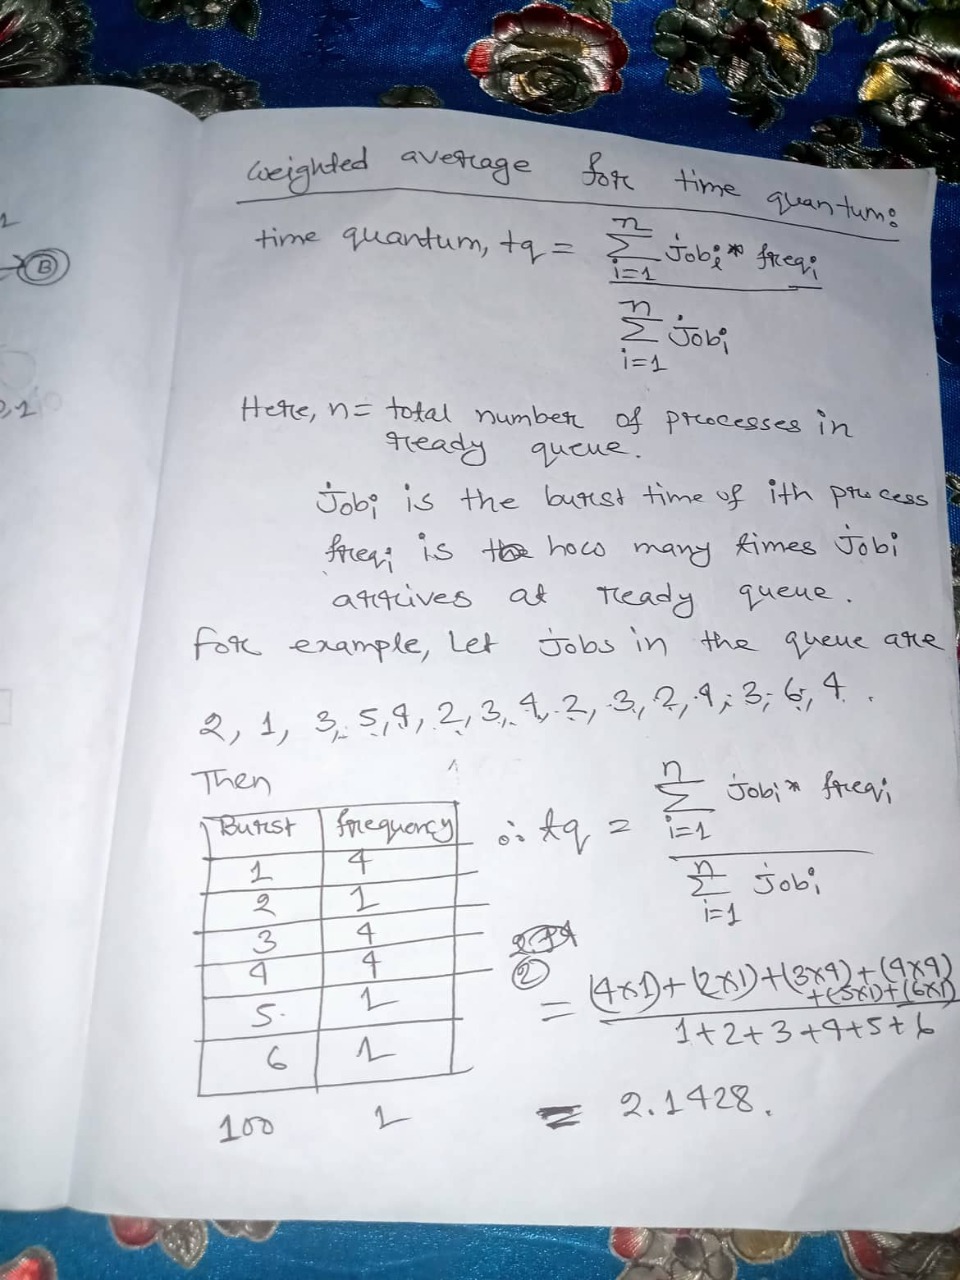 1
B
0,1
Weighted average for time quantum:
time quantum, tq = n∑i=1 Jobi * freqi
n∑i=1 Jobi
Here, n = total number of processes in
ready queue.
Jobi is the burst time of ith process
freqi is how many times Jobi
arrives at ready queue.
For example, Let Jobs in the queue are
2, 1, 3, 5, 4, 2, 3, 4, 2, 3, 2, 4, 3, 6, 4.
Then
Burst frequency
1 4
2 1
3 4
4 4
5. 1
6 1
100 1
∴ tq = n∑i=1 Jobi * freqi
n∑i=1 Jobi
2
= (4×1)+(2×1)+(3×4)+(4×4)
+(5×1)+(6×1)
1+2+3+4+5+6
= 2.1428.